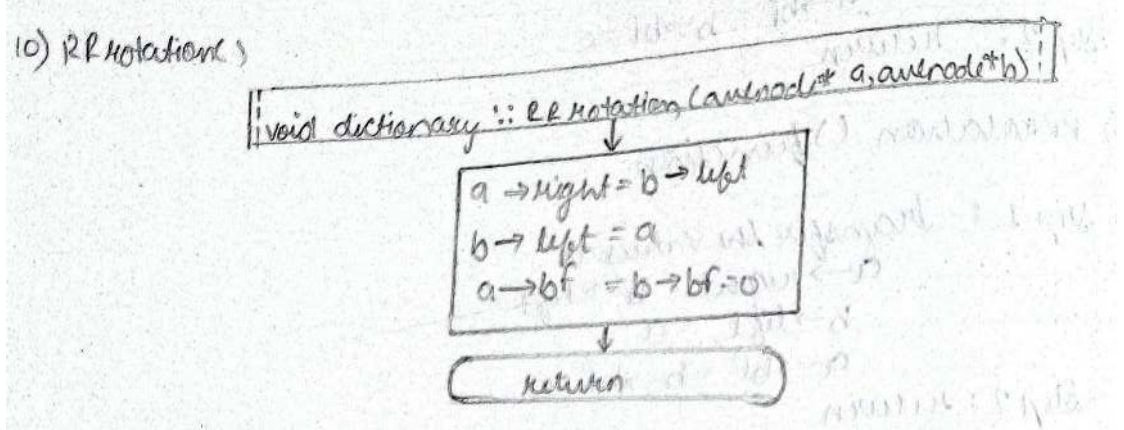 10) RRrotation()
void dictionary :: RRrotation(avlnode* a, avlnode* b)
a → right = b → left
b → left = a
a → bf = b → bf = 0
return